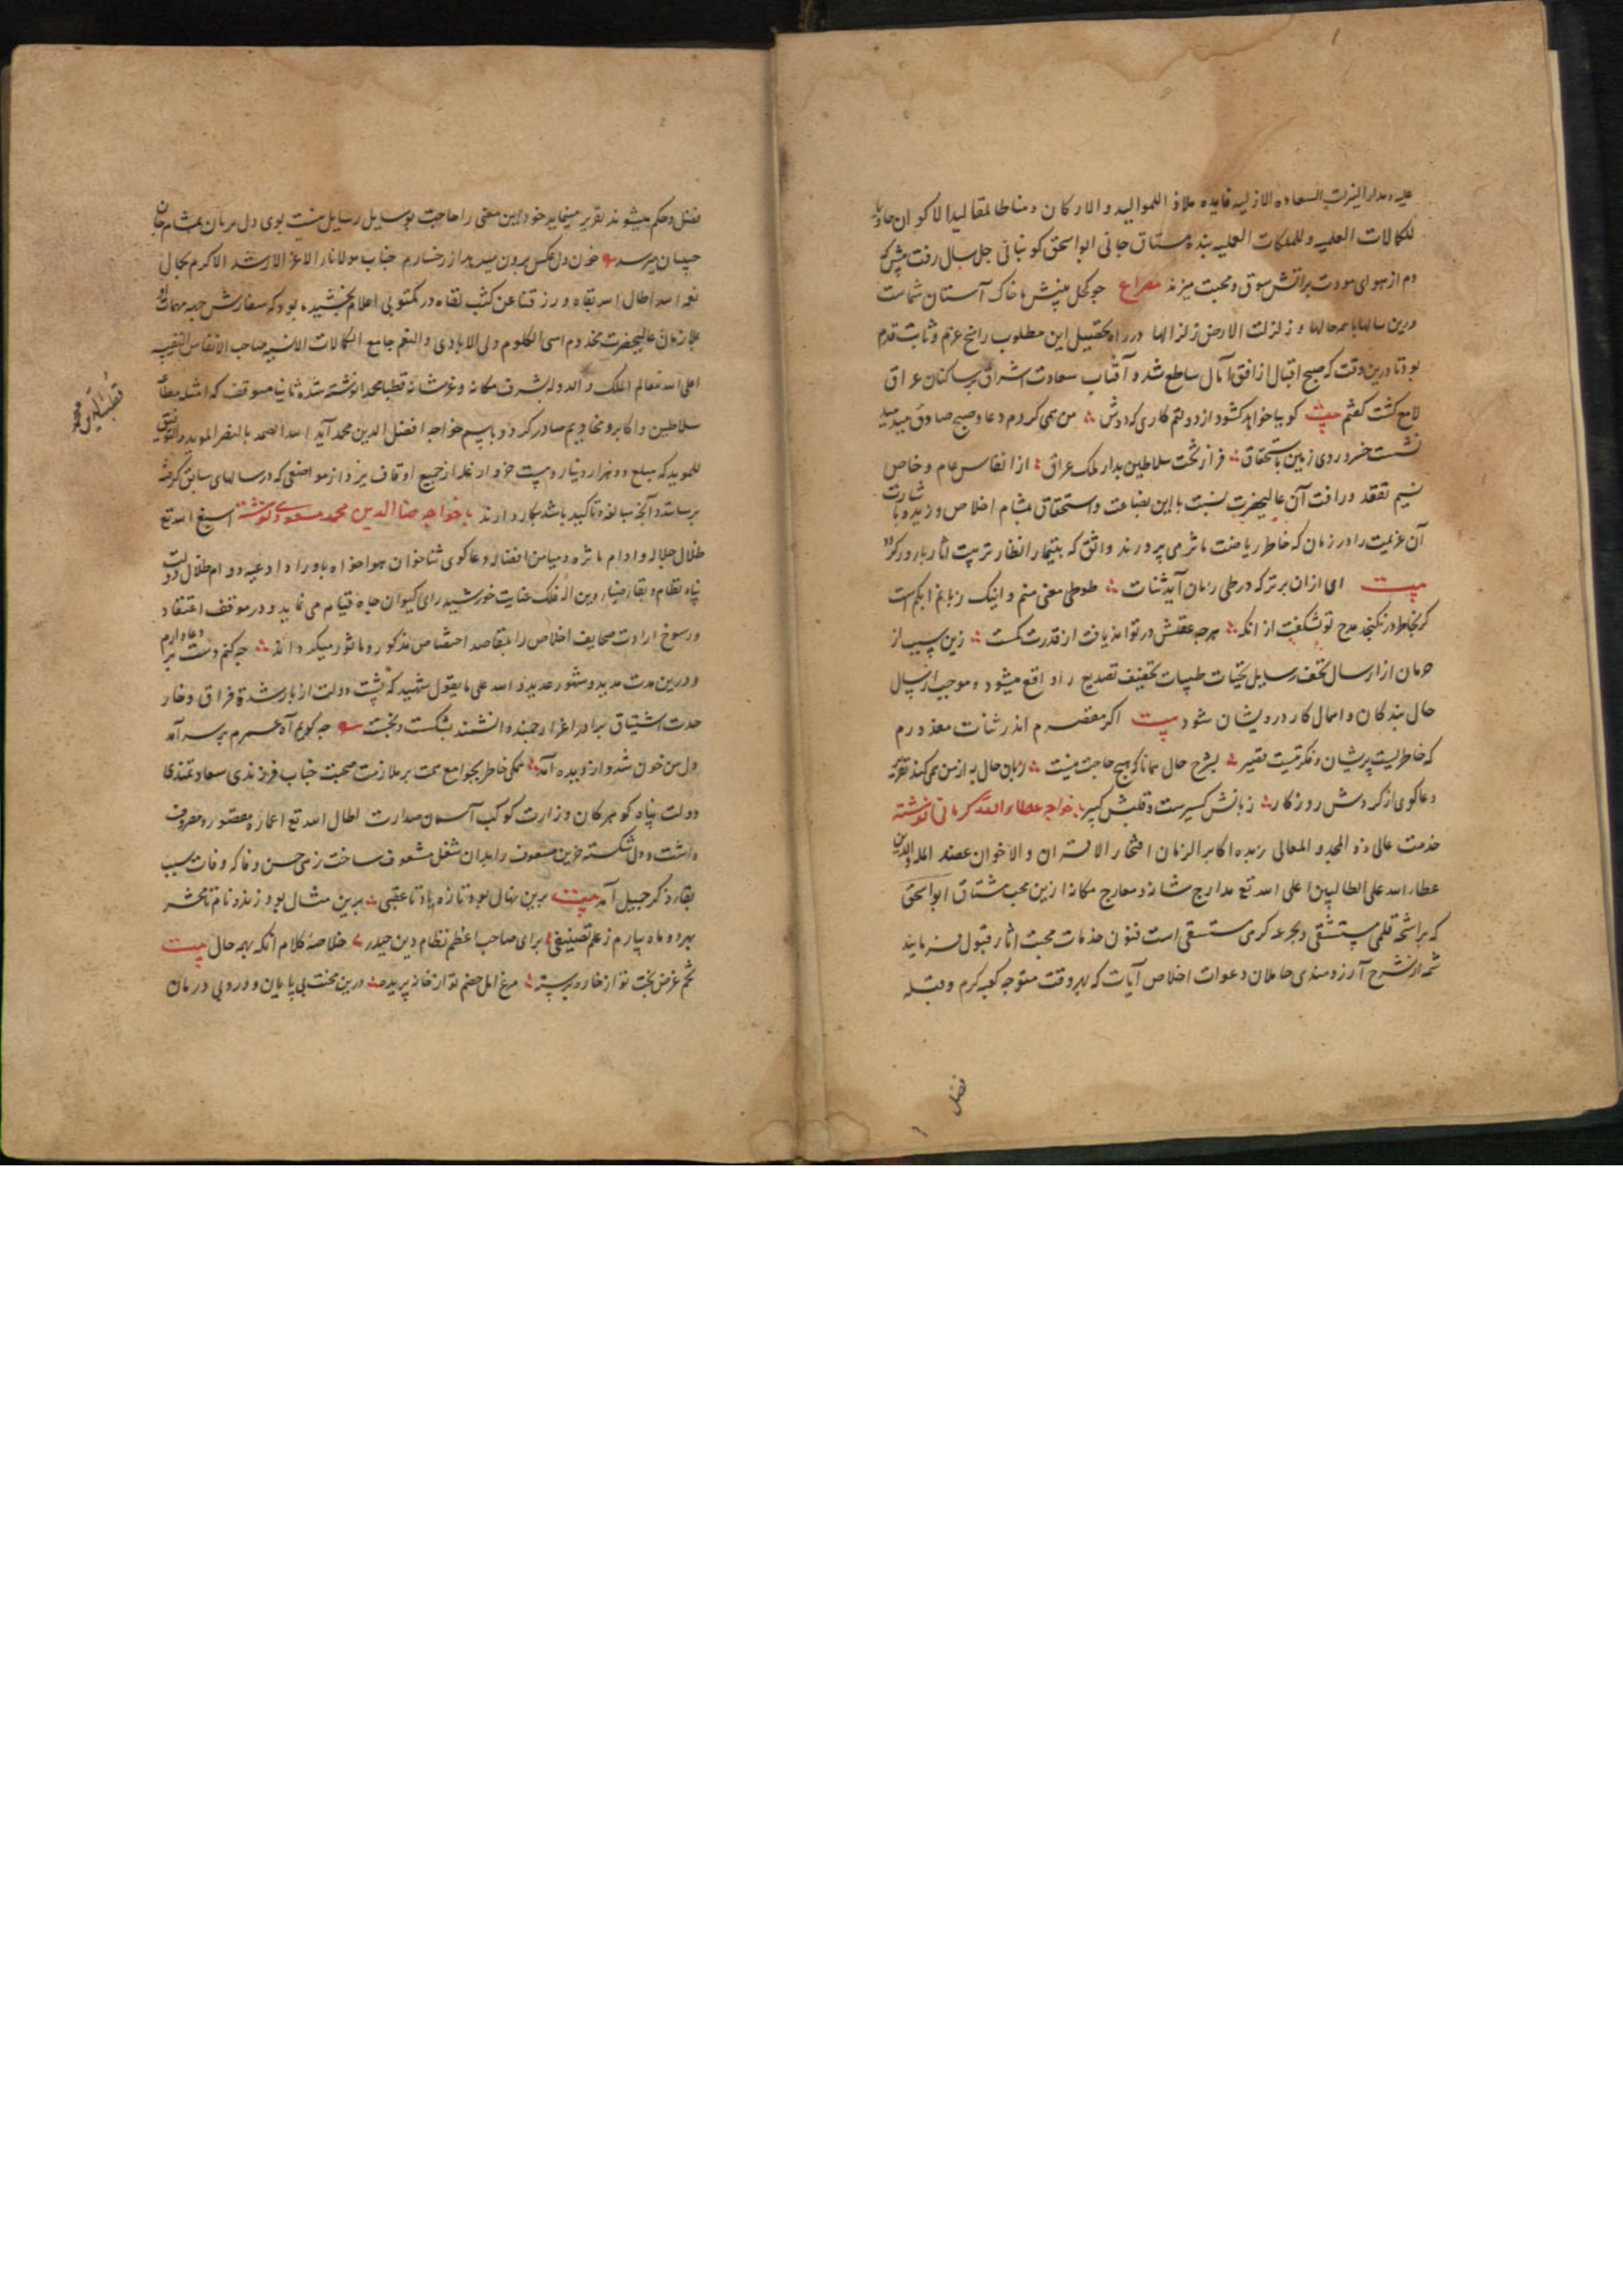 علیه ومدار النیرات السعاده الازلیه فایده ملاذ الموالید و الارکان ومناطا لمقالید الاکوان حاویا
للکمالات العلمیه و للملکات العملیه بنده مشتاق جانی ابواسحق کوبنانی چل سال رفت بیش که
دم از هوای مودت براتش شوق ومحبت میزند مصراع جو کحل بینش ما خاک آستان شماست
ودرین سالها با همه حالها و زلزلت الارض زلزالها در راه تحصیل این مطلوب راسخ عزم و ثابت قدم
بود تا درین وقت که صبح اقبال از افق آمال ساطع شد و آفتاب سعادت اشراق بر ساکنان عراق
لامع کشت کفتم بیت کوییا خواهد کشود از دولتم کاری که دوش من همی کردم دعا و صبح صادق میدمید
نشست خسرو روی زمین باستحقاق فراز تخت سلاطین بدار ملک عراق از انفاس عام و خاص
نسیم تفقد و رافت آن عالیحضرت نسبت با این بضاعت و استحقاق بمشام اخلاص وزید و بشارت
آن عزیمت را در زمان که خاطر ریاضت ماثر می پرورند واثق که بتیمار انظار تربیت اثار بارور کردد
بیت ای ازان برتر که در طی زمان آید ثنات طوطی معنی منم و اینک زبانم ابکم است
کر بخاطر در نکنجد مدح تو نشکفت از انکه هرچه عقلش در تواند یافت از قدرت کمست زین سبب از
حرمان از ارسال تحف رسایل تحیات طیبات تخفیف تصدیع را واقع میشود و موجب ارسال
حال بندکان و اهمال کار درویشان شود بیت اکر مقصرم اندر ثنات معذورم
که خاطریست پریشان و فکرتیست فقیر بشرح حال همانا که هیچ حاجت نیست زبان حال به از من همی کند تقریر
دعاکوی از کردش روزکار زبانش کسیرست و قلبش کبیر بخواجه عطاء الله کرمانی نوشته
خدمت عالی ذو المجد و المعالی زبده اکابر الزمان افتخار الاقران و الاخوان عضد المله والدین
عطاء الله علی الطالبین اعلی الله تع مدارج شانه ومعارج مکانه ازین محب مشتاق ابواسحق
که براشحه قلمی مستسقی و بجرعه کرمی مستسقی است فنون خدمات محبت اثار قبول فرمایند
شمه از شرح آرزومندی حاملان دعوات اخلاص آیات که بهر وقت متوجه کعبه کرم و قبله
فضل
فضل و حکم میشوند تقریر مینماید خود این معنی را حاجت بوسایل رسایل نیست بوی دل بریان بمشام جان
حبیبان میرسد خون دل عکس برون میدهد از رخسارم جناب مولانا الاعز الارشد الاکرم بکمال
اطال الله بقاه و رزقنا عن کثب لقاه در مکتوبی اعلام بخشیده بود که سفارش جهه مهمات او
بملازمان عالیحضرت مخدوم اسی الکلوم ولی الایادی و النعم جامع الکمالات الانسیه صاحب الانفاس القدسیه
اعلی الله تعالی معالم الملک و الدوله بشرف مکانه و عز شانه قطبا محمدا نوشته شد ثانیا متوقف که امثله مطاع
قطب الدین محمد
سلاطین و اکابر و مخادیم صادر کردد و باسم خواجه افضل الدین محمد آید الله الصمد بالنصر الموید والتوفیق
للموید که مبلغ دو هزار دینار و بیست خروار غله از جمیع اوقاف یزد از مواضعی که در سالهای سابق کرفته
برسانند و آنچه مبالغه و تاکید باشد بکار دارند بخواجه ضیاالدین محمد مسعودی نوشته اسبغ الله تع
ظلال جلاله و ادام ماثره و میامن افضاله دعاکوی ثناخوان هواخواه باوراد ادعیه دوام ظلال دولت
پناه نظام و بقاء ضیاء دین اله فلک عنایت خورشید رای کیوان جاه قیام می نماید و در موقف اعتقاد
و رسوخ ارادت صحایف اخلاص را بمقاصد اختصاص مذکور و ماثور میکرداند چه کنم دست بر دعا دارم
و درین مدت مدید و شهور عدید و الله علی ما یقول شهید که پشت دولت از بار شده فراق و خار
حدت اشتیاق برادر اعز ارجمند دانشمند بشکست و بخست چه کویم آه عمرم بر سر آمد
دل من خون شد و از دیده آمد همکی خاطر بجوامع همت بر ملازمت صحبت جناب فرزندی سعادتمندی
دولت پناه کوهر کان وزارت کوکب آسمان صدارت اطال الله تع اعماره مقصور و مصروف
داشت و دل شکسته حزین مشعوف را بدان شغل مشعوف ساخت رزمی حسن وفا که وفات سبب
بقاء ذکر جمیل آمد بیت برین نهال بود تازه یاد تا عقبی برین مثال بود زنده نام تا محشر
بهر دو ماه بیارم ز علم تصنیفی برای صاحب اعظم نظام دین حیدر خلاصه کلام انکه بهمه حال بیت
تخم غرض بخت تو از خاره برسته مرغ امل خصم تو از خانه پریده درین محنت بی پایان و درد بی درمان